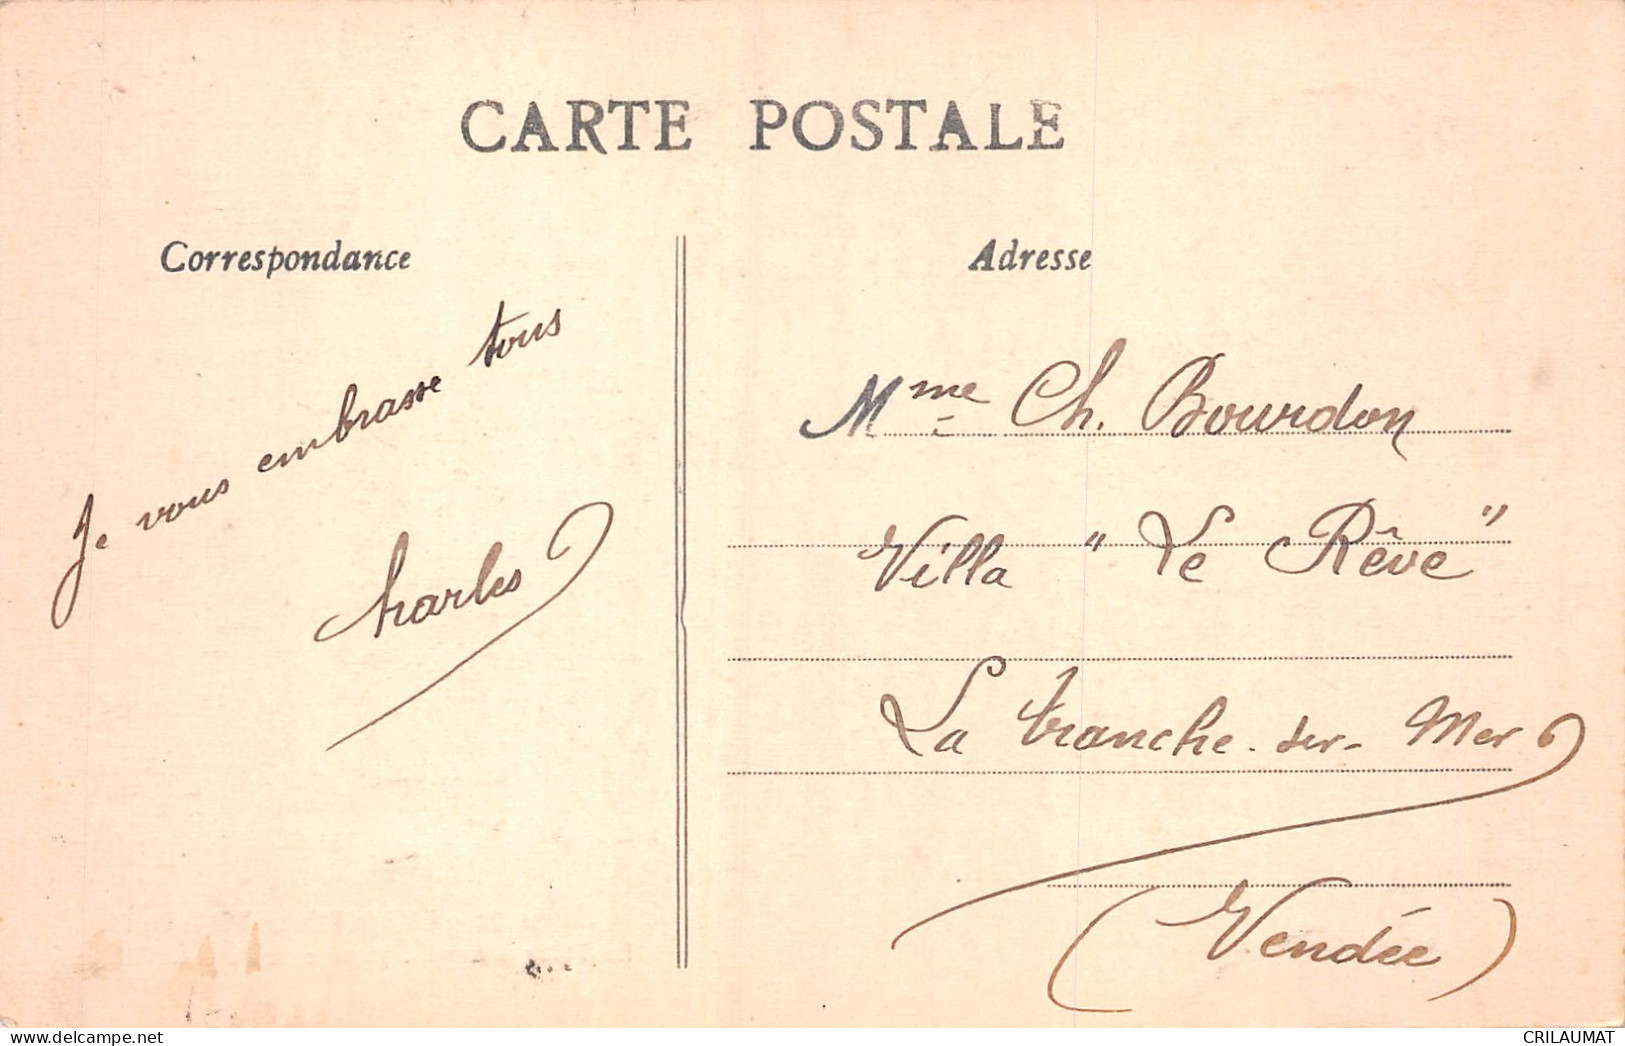 CARTE POSTALE
Correspondance
Je vous embrasse tous
Charles
Adresse
Mme Ch. Bourdon
Villa "Le Rêve"
La tranche-sur-Mer
(Vendée)
www.delcampe.net
CRILAUMAT